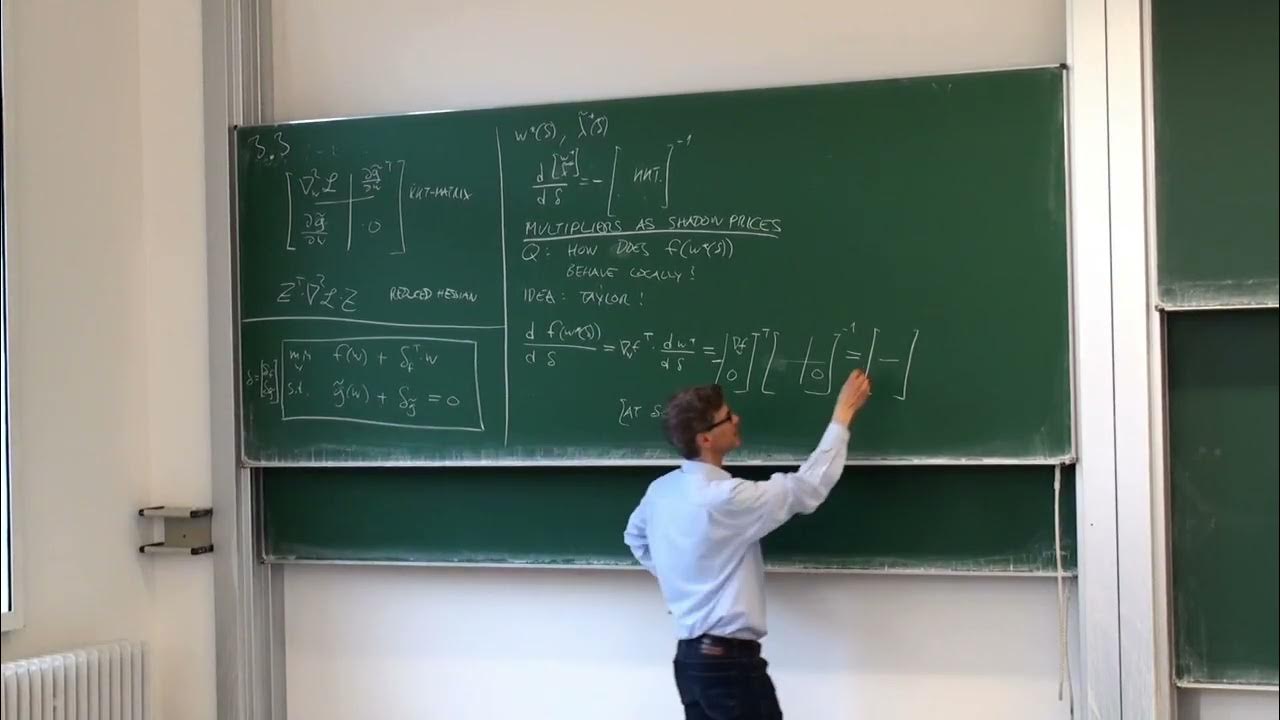 3.3
[ ∇²_w ℒ | ∂g̃/∂w ᵀ ] KKT-MATRIX
[ ∂g̃/∂w | 0 ]
Zᵀ·∇²ℒ·Z REDUCED HESSIAN
min_w f(w) + δ_fᵀ·w
s.t. g̃(w) + δ_g̃ = 0
w*(δ), λ̃*(δ)
d/dδ = - [ KKT. ]⁻¹
MULTIPLIERS AS SHADOW PRICES
Q: HOW DOES f(w*(δ))
BEHAVE LOCALLY?
IDEA: TAYLOR!
d f(w*(δ))/dδ = ∇_w fᵀ · d w*/dδ = - [ ∇f 0 ]ᵀ [ 0 ]⁻¹ = [ — ]
[AT δ